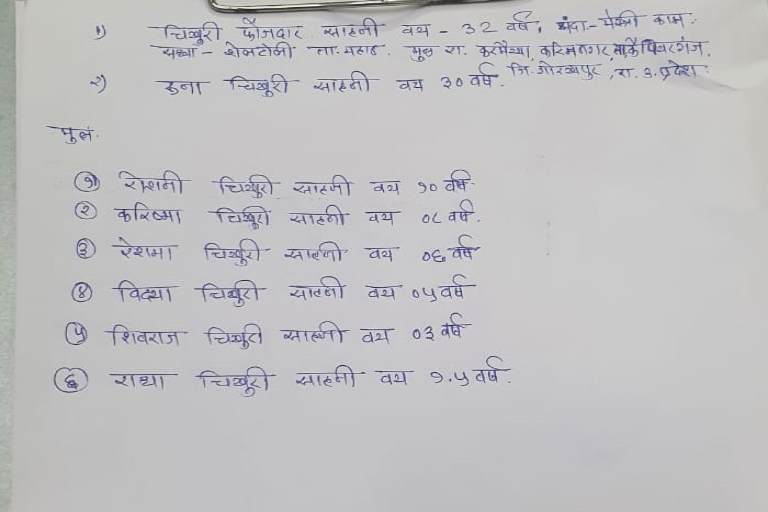 १) चिखुरी फौजदार साहनी वय - 32 वर्षे, धंदा - पेंन्टी काम.
सध्या - शेलटोली ता. महाड. मुळ रा. करमैथ्या, करिमनगर, मार्कै पिपरगंज,
जि. गोरखपुर, रा. उ. प्रदेश.
२) रुना चिखुरी साहनी वय ३० वर्षे.
मुलं.
१) रोशनी चिखुरी साहनी वय १० वर्षे
२) करिष्मा चिखुरी साहनी वय ०८ वर्षे.
३) रेशमा चिखुरी साहनी वय ०६ वर्षे
४) विद्या चिखुरी साहनी वय ०५ वर्षे
५) शिवराज चिखुरी साहनी वय ०३ वर्षे
६) राधा चिखुरी साहनी वय १.५ वर्षे.